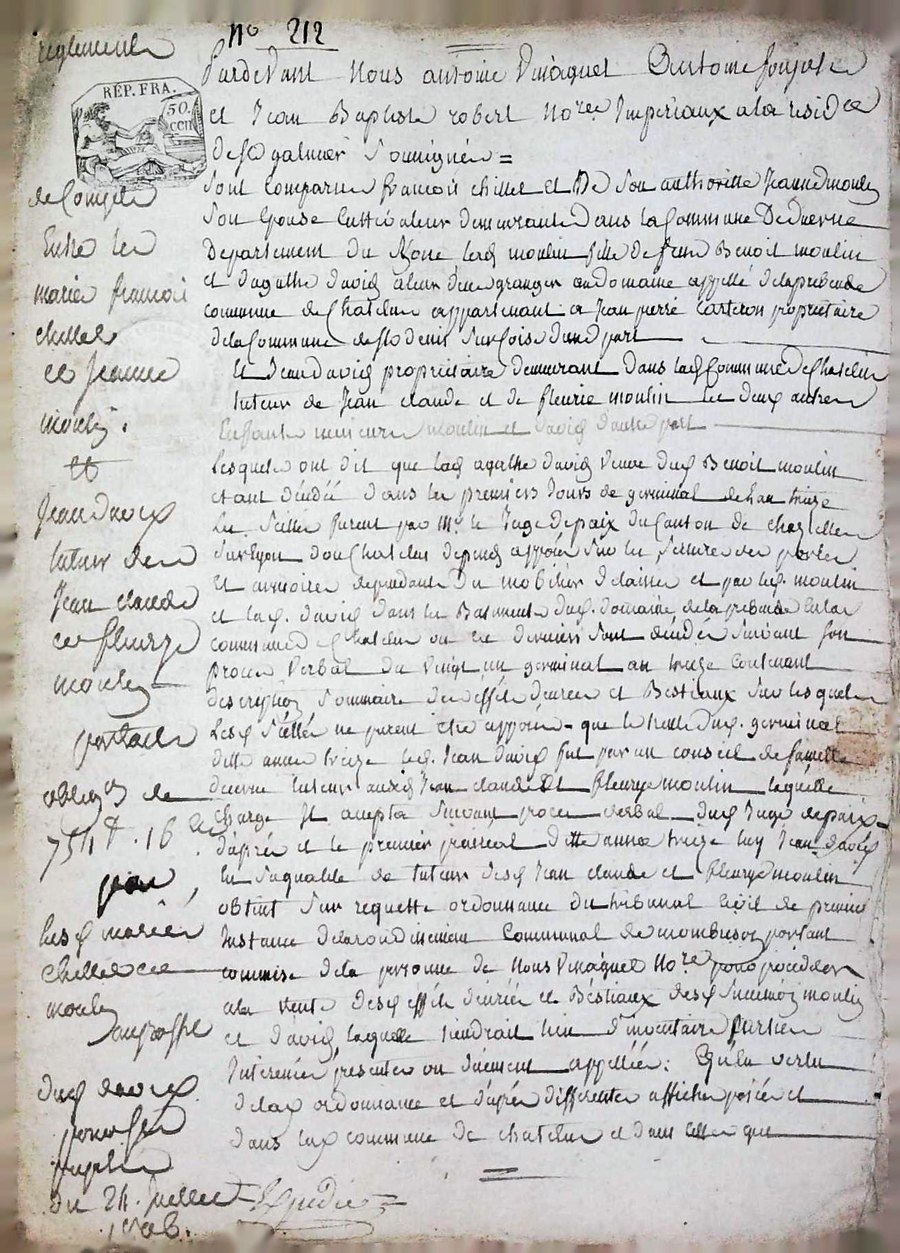 No 212
reglement
Pardevant Nous antoine Vinaquet Antoine
et Jean Baptiste robert No.res Imperiaux a la resid.ce
de St galmier soussignés =
RÉP. FRA.
50.
CEN
Sont comparus francois chillet et De Son authorité Jeanne moulin
Son Epouse Cultivateur demeurants dans la Commune De
Departement du Rone lad moulin fille de feu Benoit moulin
et d'agathe david granger au domaine appellé de la
commune de Chatelus appartenant a Jean pierre proprietaire
de la Commune de St denis Sur Coise d'une part
Et Jean david proprietaire demeurant dans lad Commune de Chatelus
tuteur de Jean claude et de fleurie moulin les deux autres
Enfants mineurs moulin et david d'autre part
Lesquels ont dit que lad agathe david veuve dud Benoit moulin
etant décédée dans les premiers Jours de germinal de l'an treize
Les Scellés furent par Mr le Juge de paix du Canton de chazelles
Sur Lyon appozés Sur les des portes
et armoires dependants du mobilier delaissé par led moulin
et lad. david dans les Batiments dud. domaine de la
commune de chatelus ou ces derniers sont décédés Suivant Son
Proces Verbal du Vingt un germinal an treize Contenant
description Sommaire des effets denrées et Bestiaux Sur lesquels
Les d Scellés ne purent etre appozés que le trente dud. germinal
ditte année treize led Jean david fut par un conseil de famille
tuteur auxd Jean claude Et fleury moulin laquelle
Charge Il accepta Suivant proces verbal dud Juge de paix
d'après et le premier prairial ditte année treize luy Jean david
En Saqualité de tuteur desd Jean claude et fleury moulin
obtint Sur requette ordonnance du tribunal Civil de premiere
Instance de larondissement Communal de montbrison portant
commise de la personne de Nous Vinaquet No.re pour procéder
a la vente desd effets denrées et Bestiaux desd Successions moulin
et david, laquelle tiendrait lieu d'inventaire parties
Interessées presentes ou duement appellées: Qu'en vertu
delad ordonnance et d'après differentes affiches posées et
dans lad commune de chatelus et dans celles que
de Compte
Entre les
mariés francois
chillet
et Jeanne
moulin.
Et
Jean david
tuteur de
Jean claude
et fleurye
moulin
portant
oblig.on de
754 tt. 16 c
par
lesd mariés
chillet et
moulin
au proffit
dud david
pour ses
pupiles
du 24. Juillet
1806.